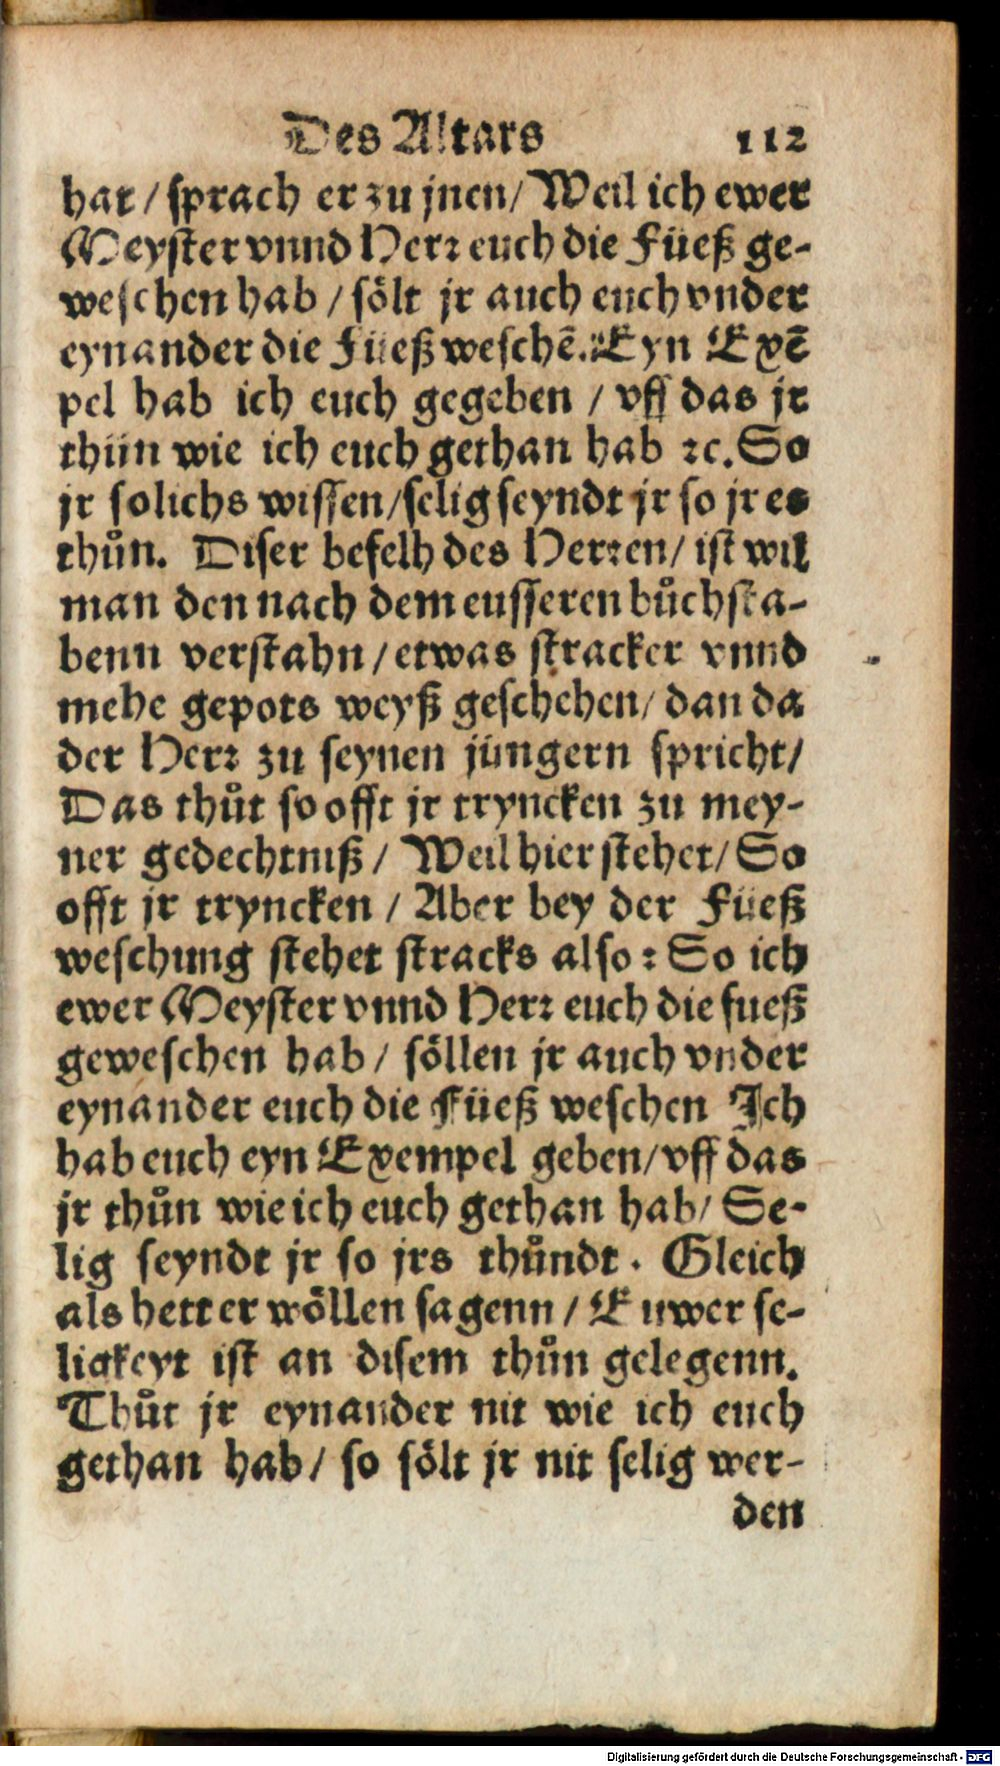 Des Altars 112
hat / sprach er zu jnen / Weil ich ewer
Meyster vnnd Herr euch die Füeß ge-
weschen hab / sölt jr auch euch vnder
eynander die Füeß weschẽ. Eyn Exẽ
pel hab ich euch gegeben / vff das jr
thün wie ich euch gethan hab ꝛc. So
jr solichs wissen / selig seyndt jr so jr es
thůn. Diser befelh des Herren / ist wil
man den nach dem eusseren bůchsta-
benn verstahn / etwas stracker vnnd
mehe gepots weyß geschehen / dan da
der Herr zu seynen jüngern spricht /
Das thůt so offt jr tryncken zu mey-
ner gedechtniß / Weil hier stehet / So
offt jr tryncken / Aber bey der Füeß
weschung stehet stracks also: So ich
ewer Meyster vnnd Herr euch die fueß
geweschen hab / söllen jr auch vnder
eynander euch die Füeß weschen Ich
hab euch eyn Exempel geben / vff das
jr thůn wie ich euch gethan hab / Se-
lig seyndt jr so jrs thůndt. Gleich
als hett er wöllen sagenn / Euwer se-
ligkeyt ist an disem thůn gelegenn.
Thůt jr eynander nit wie ich euch
gethan hab / so sölt jr nit selig wer-
den
Digitalisierung gefördert durch die Deutsche Forschungsgemeinschaft - DFG